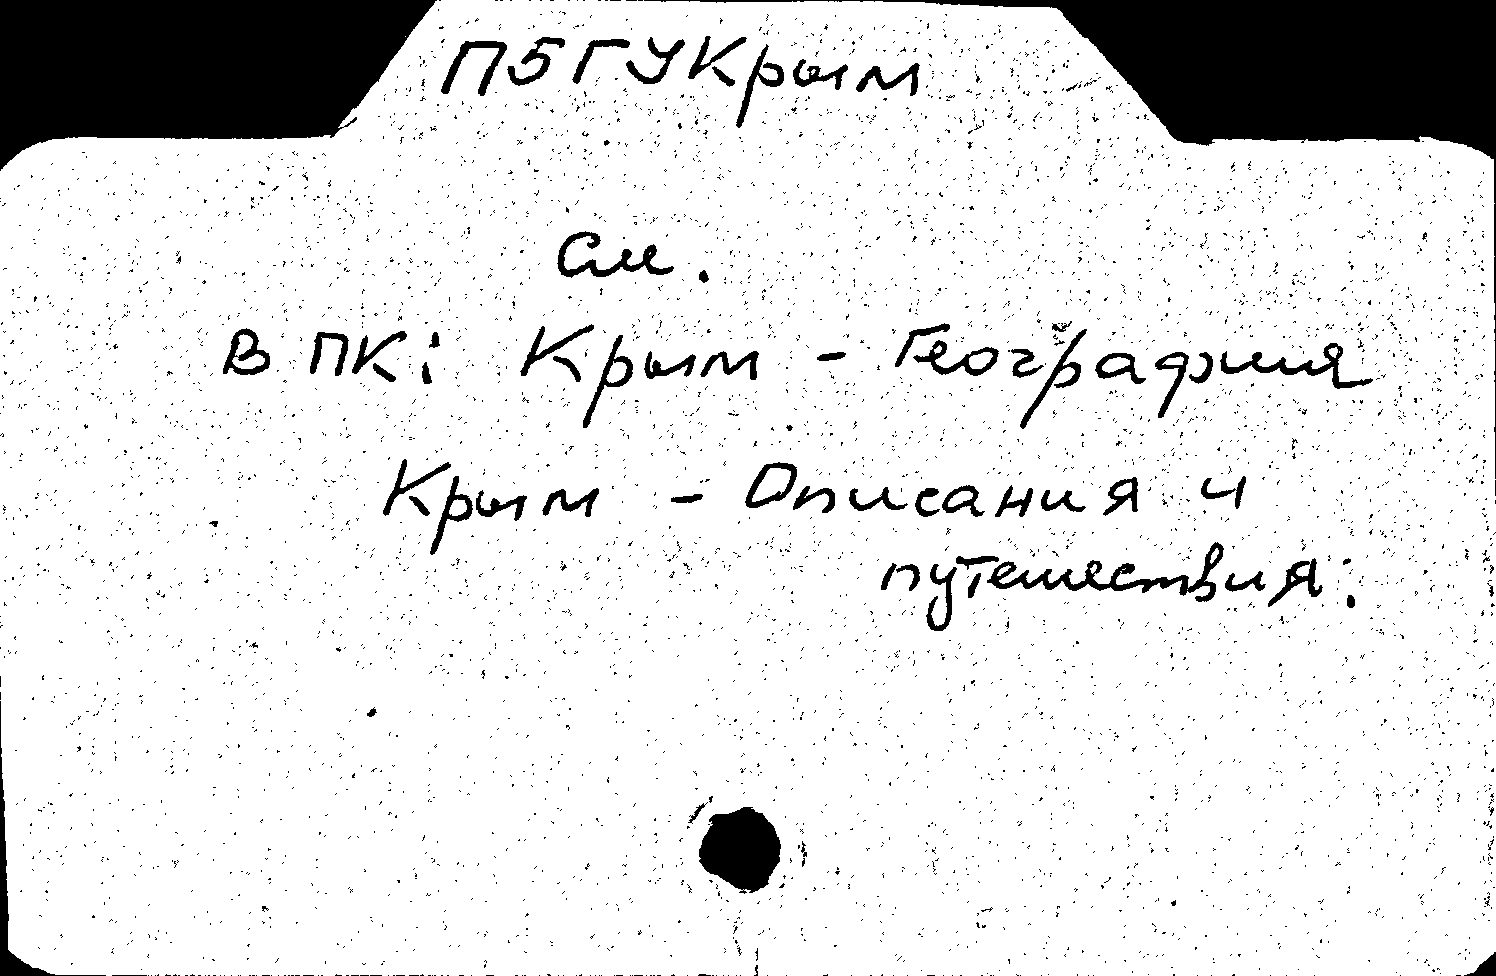 П5ГУКрым
См.
В ПК: Крым - География
Крым - Описания и
путешествия.